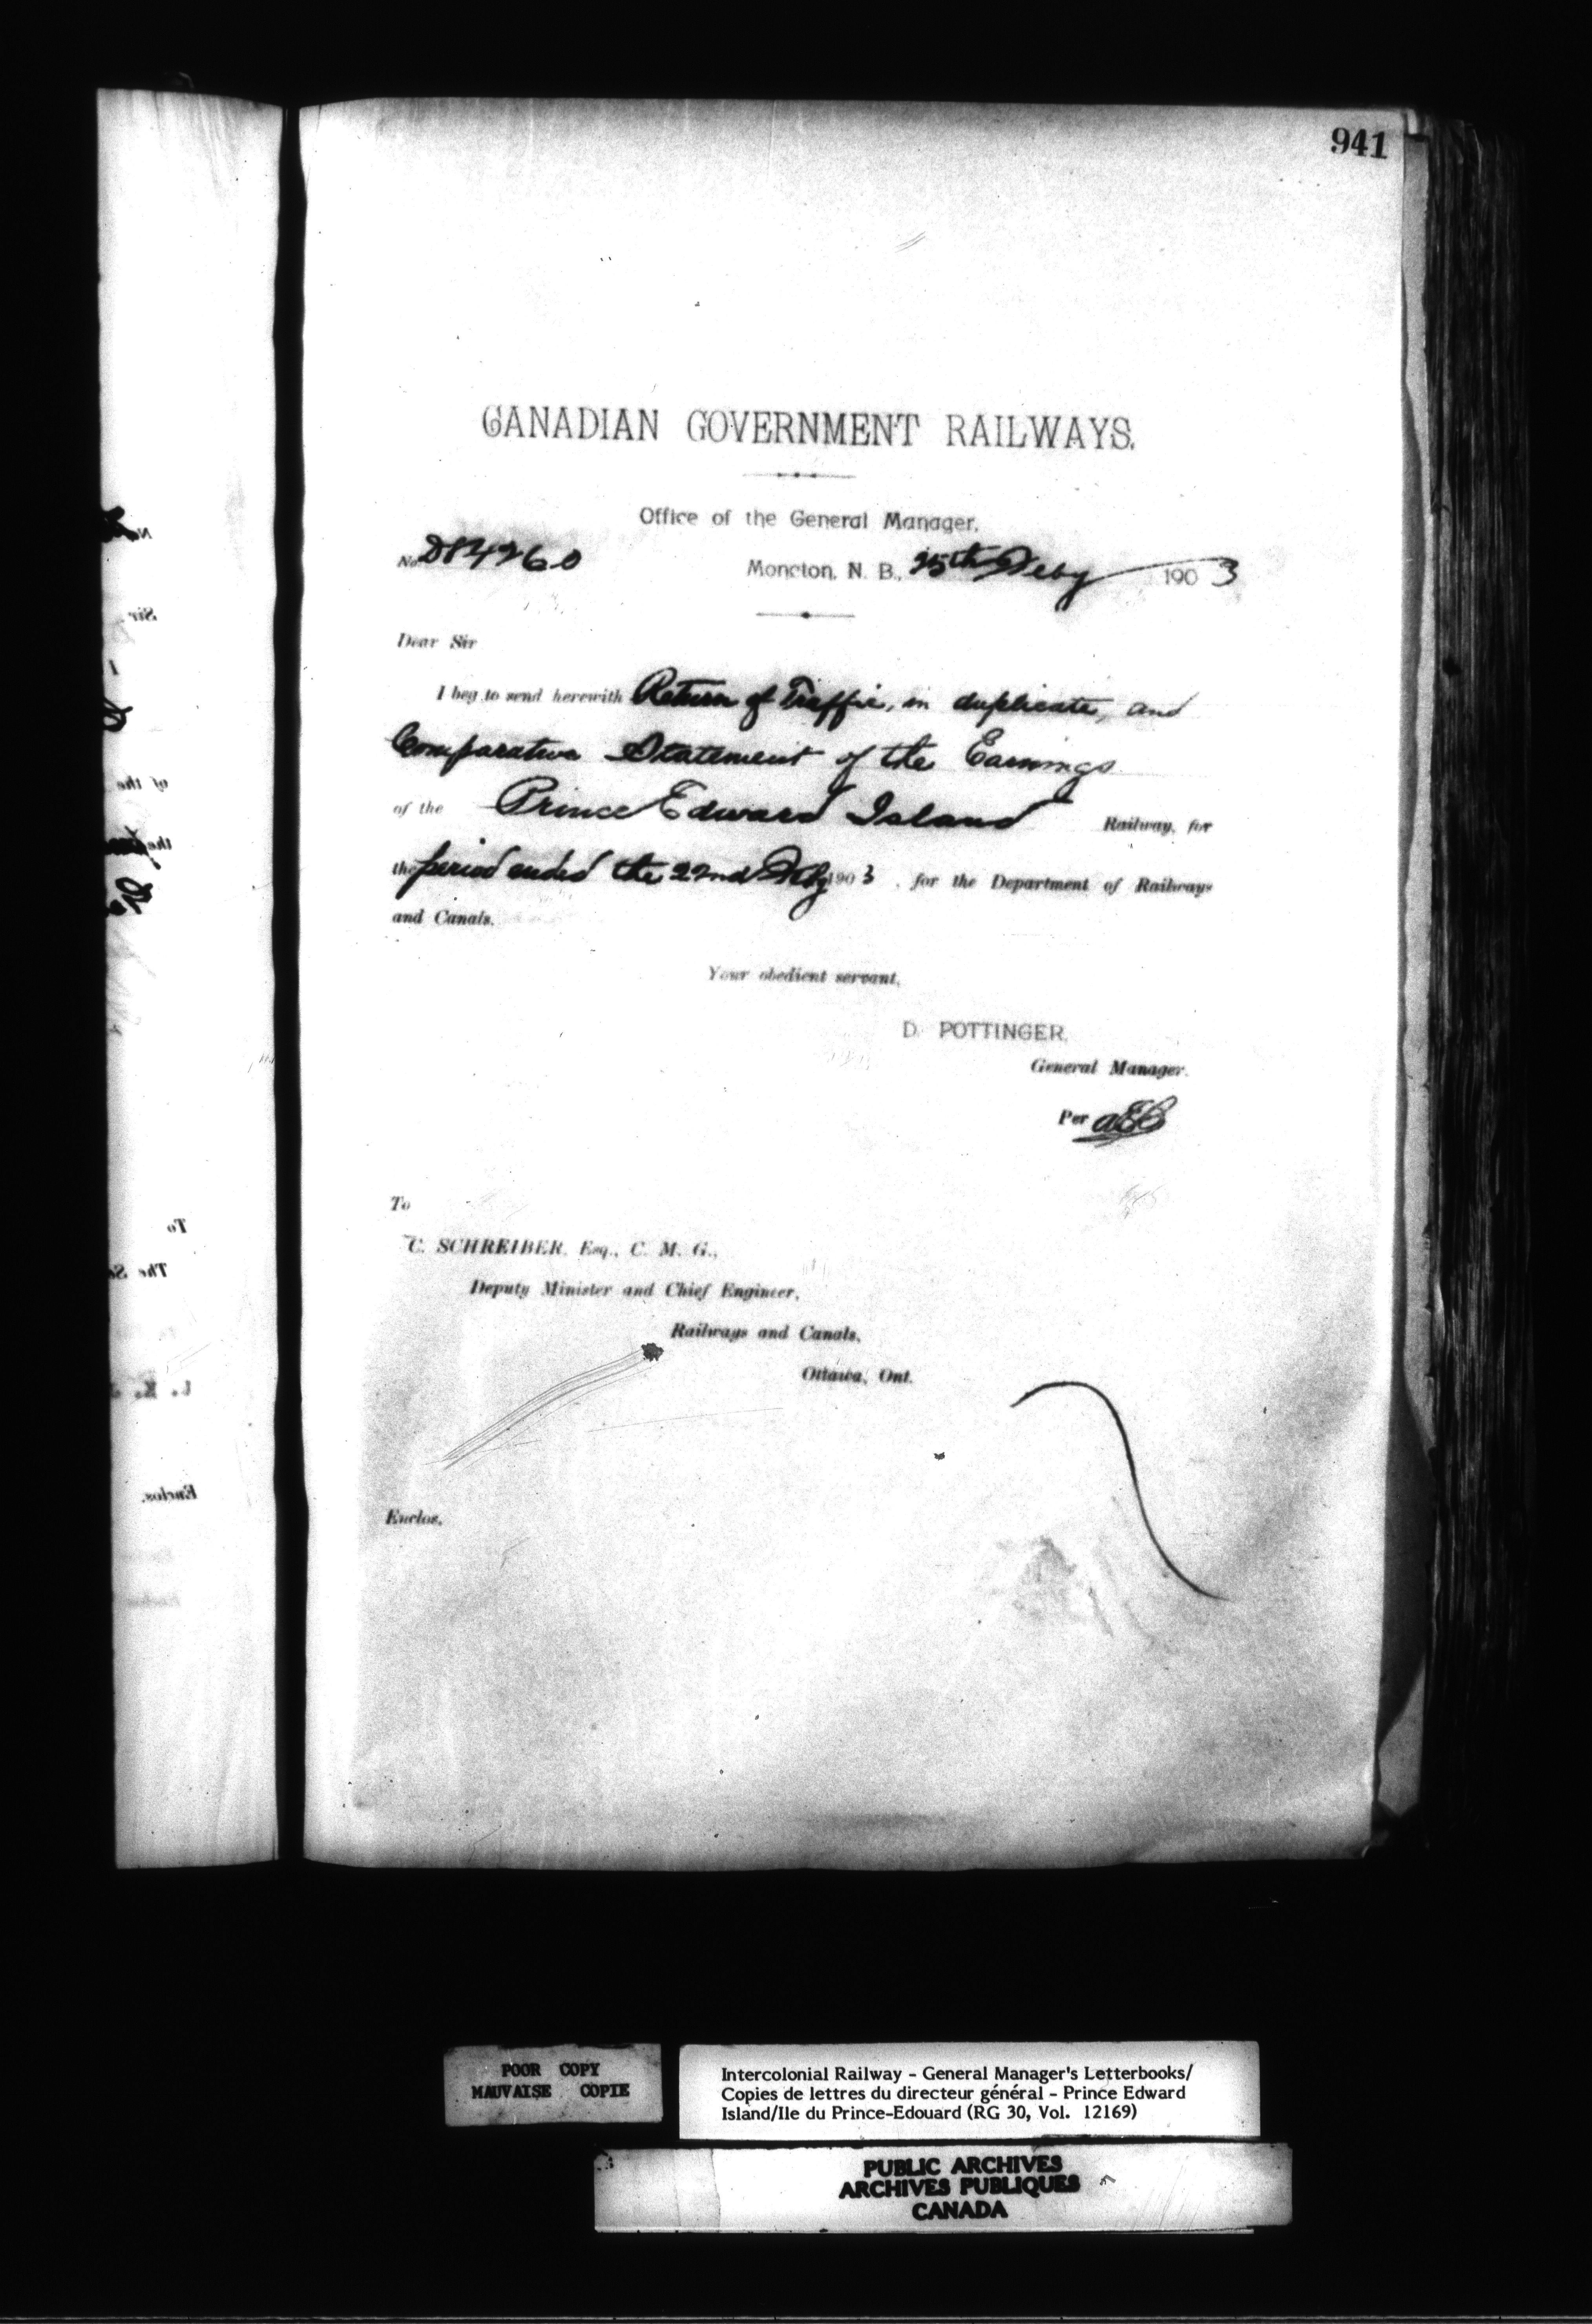 941
CANADIAN GOVERNMENT RAILWAYS.
Office of the General Manager,
No. D84260 Moncton, N. B., 25th Feby 1903
Dear Sir
I beg to send herewith Return of Traffic, in duplicate, and
Comparative Statement of the Earnings
of the Prince Edward Island Railway, for
the period ended the 22nd Feby 1903, for the Department of Railways
and Canals.
Your obedient servant,
D. POTTINGER,
General Manager.
Per AEB
To
C. SCHREIBER, Esq., C. M. G.,
Deputy Minister and Chief Engineer,
Railways and Canals,
Ottawa, Ont.
Enclos.
POOR COPY
MAUVAISE COPIE
Intercolonial Railway - General Manager's Letterbooks/
Copies de lettres du directeur général - Prince Edward
Island/Ile du Prince-Edouard (RG 30, Vol. 12169)
PUBLIC ARCHIVES
ARCHIVES PUBLIQUES
CANADA